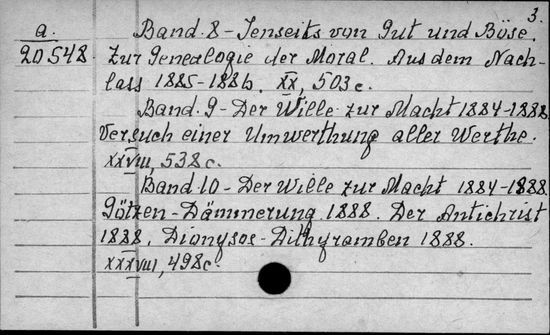 3.
a. Band. 8 - Jenseits von Gut und Böse.
20548 Zur Genealogie der Moral. Aus dem Nach-
lass 1885-1886. XX, 503 c.
Band. 9 - Der Wille zur Macht 1884-1888.
Versuch einer Umwerthung aller Werthe.
XXVIII, 538 c.
Band 10 - Der Wille zur Macht 1884-1888.
Götzen-Dämmerung 1888. Der Antichrist
1888. Dionysos-Dithyramben 1888.
XXXVIII, 498 c.